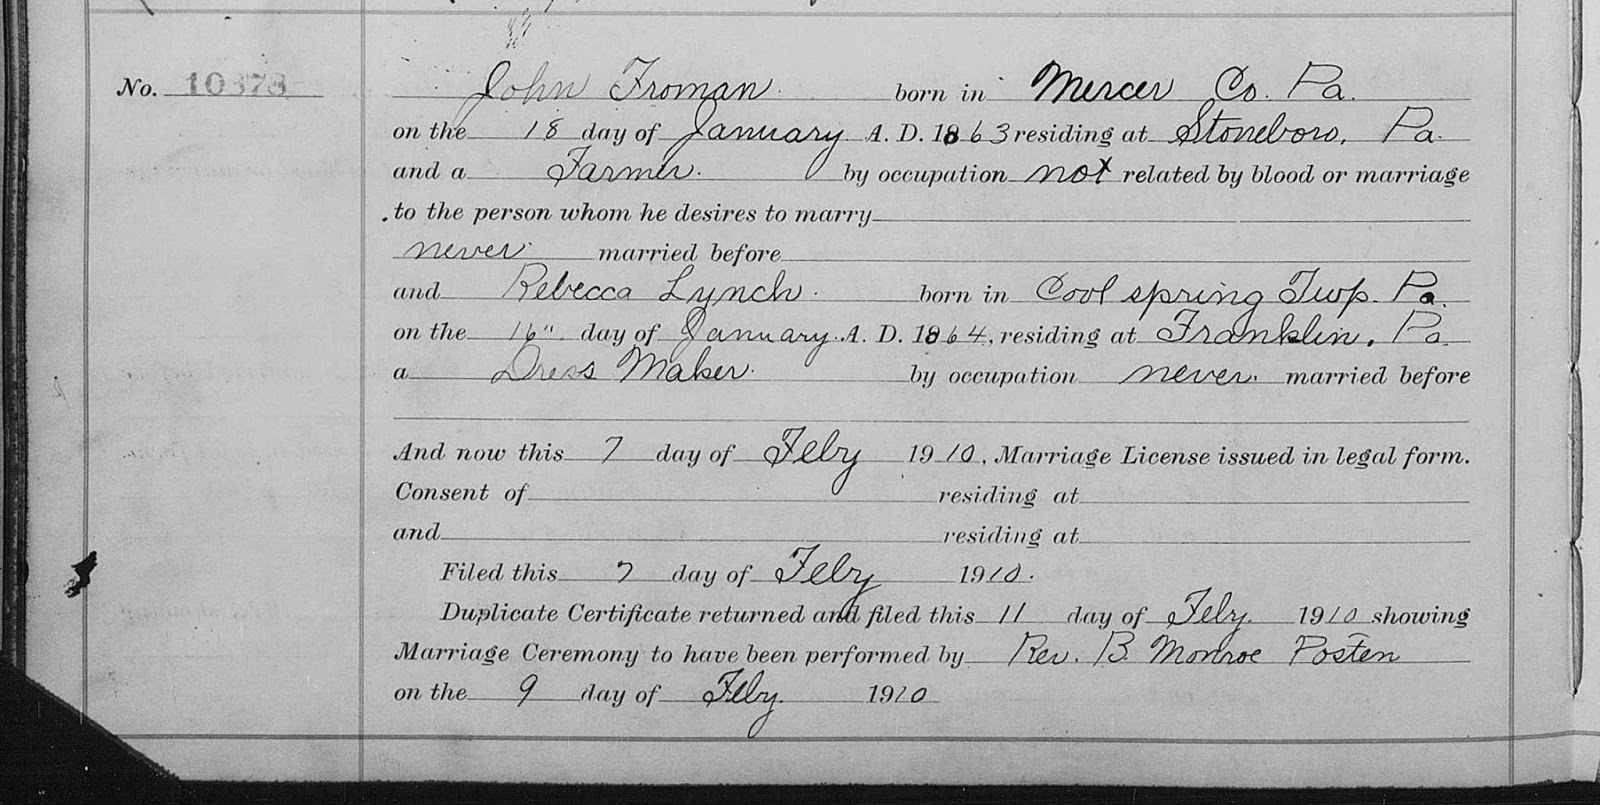 No. 10378
John Froman. born in Mercer Co. Pa.
on the 18 day of January A. D. 1863 residing at Stoneboro, Pa.
and a Farmer. by occupation not related by blood or marriage
to the person whom he desires to marry
never married before
and Rebecca Lynch. born in Cool spring Twp. Pa.
on the 16" day of January A. D. 1864, residing at Franklin, Pa.
a Dress Maker. by occupation never. married before
And now this 7 day of Feby 1910, Marriage License issued in legal form.
Consent of residing at
and residing at
Filed this 7 day of Feby 1910.
Duplicate Certificate returned and filed this 11 day of Feby. 1910 showing
Marriage Ceremony to have been performed by Rev. B. Monroe Posten
on the 9 day of Feby. 1910